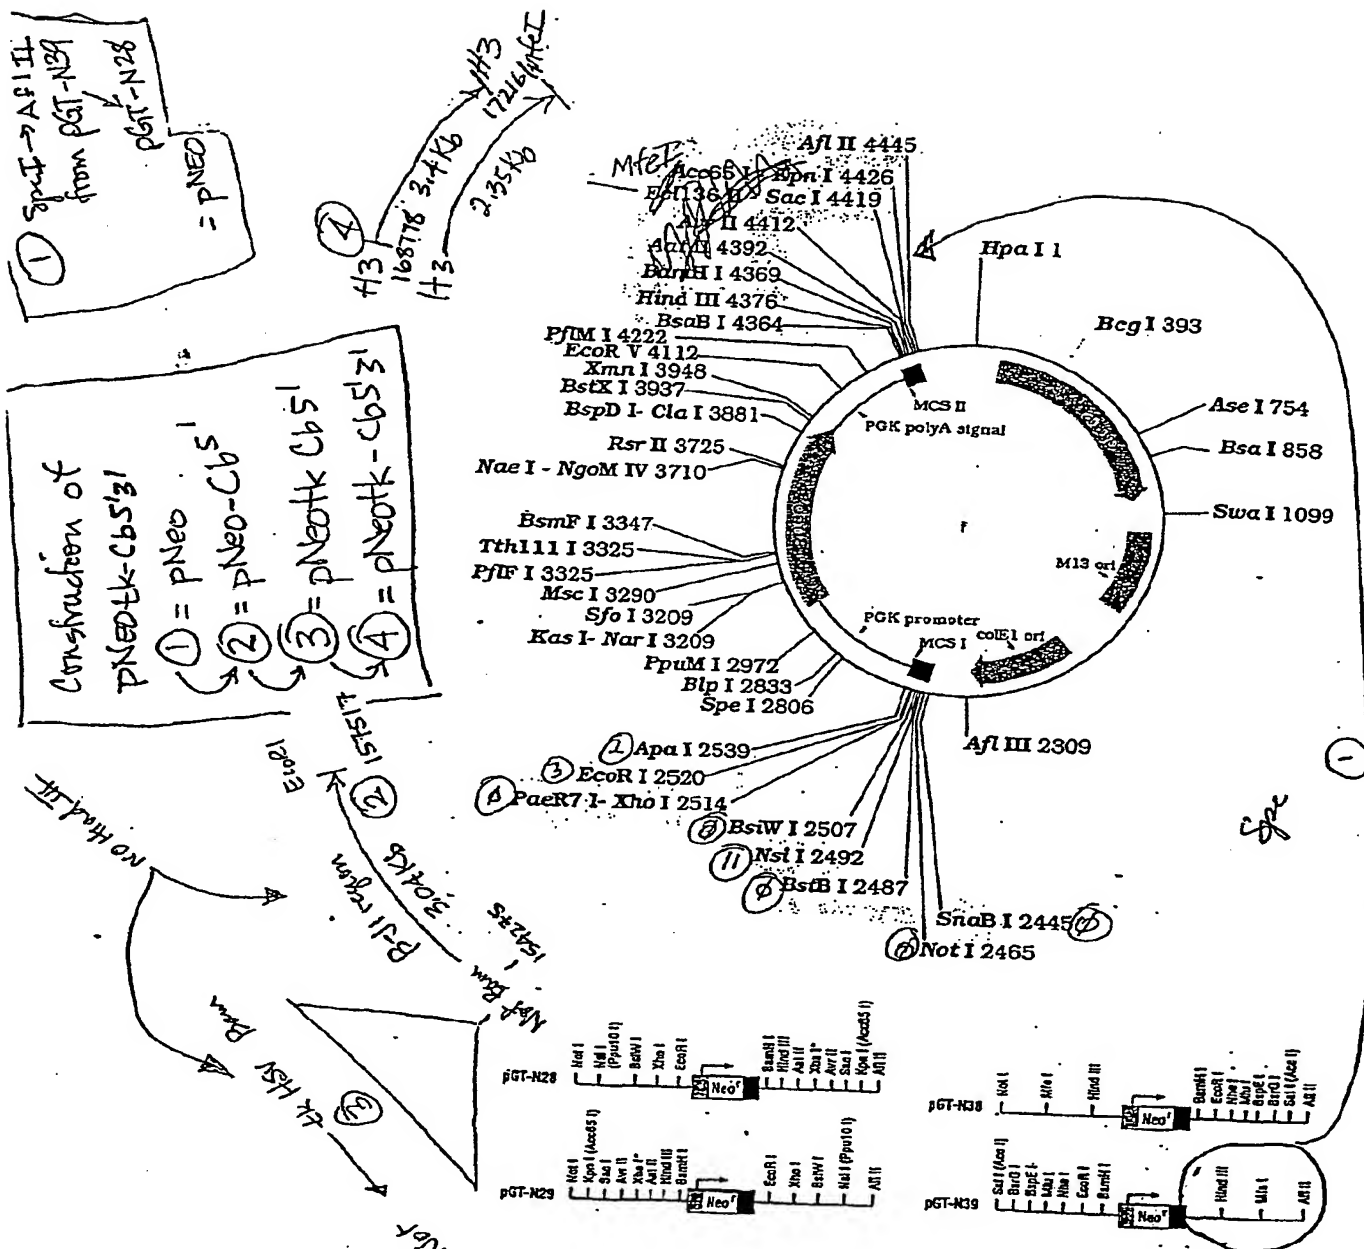 ① SpeI → AflII
from pGT-N39
pGT-N28
= pNEO
④
H3
168778 3.4 Kb
H3
H3
2.35Kb
17216
MfeI
Construction of
pNEOtk-Cb5'3'
① = pNeo
② = pNeo-Cb5'
③ = pNeotk Cb5'
④ = pNeotk-Cb5'3'
MfeI
Afl II 4445
Acc65 I - Kpn I 4426
Ecl136 II - Sac I 4419
Avr II 4412
Aat II 4392
BamH I 4369
Hind III 4376
BsaB I 4364
PflM I 4222
EcoR V 4112
Xmn I 3948
BstX I 3937
BspD I- Cla I 3881
Rsr II 3725
Nae I - NgoM IV 3710
BsmF I 3347
Tth111 I 3325
PflF I 3325
Msc I 3290
Sfo I 3209
Kas I- Nar I 3209
PpuM I 2972
Blp I 2833
Spe I 2806
Apa I 2539
③ EcoR I 2520
PaeR7 I- Xho I 2514
BsiW I 2507
⑪ Nsi I 2492
BstB I 2487
SnaB I 2445
Not I 2465
Hpa I 1
Bcg I 393
Ase I 754
Bsa I 858
Swa I 1099
Afl III 2309
MCS II
PGK polyA signal
M13 ori
PGK promoter
MCS I
colE1 ori
①
Spe
NO Hind III
EcoRI
157517
②
3.04Kb
β-J1 region
154275
Bam
tk HSV
Bam
③
Not
pGT-N28
Not I
Nsi I (Ppu10 I)
BsiW I
Xho I
EcoR I
Neoʳ
BamH I
Hind III
Aat II
Xba I*
Avr II
Sac I
Kpn I (Acc65 I)
Afl II
pGT-N29
Not I
Kpn I (Acc65 I)
Sac I
Avr II
Xba I*
Aat II
Hind III
BamH I
Neoʳ
EcoR I
Xho I
BsiW I
Nsi I (Ppu10 I)
Afl II
pGT-N38
Not I
Mfe I
Hind III
Neoʳ
BamH I
EcoR I
Nhe I
Mlu I
BspE I
BsrG I
Sal I (Acc I)
Afl II
pGT-N39
Sal I (Acc I)
BsrG I
BspE I
Mlu I
Nhe I
EcoR I
BamH I
Neoʳ
Hind III
Mfe I
Afl II